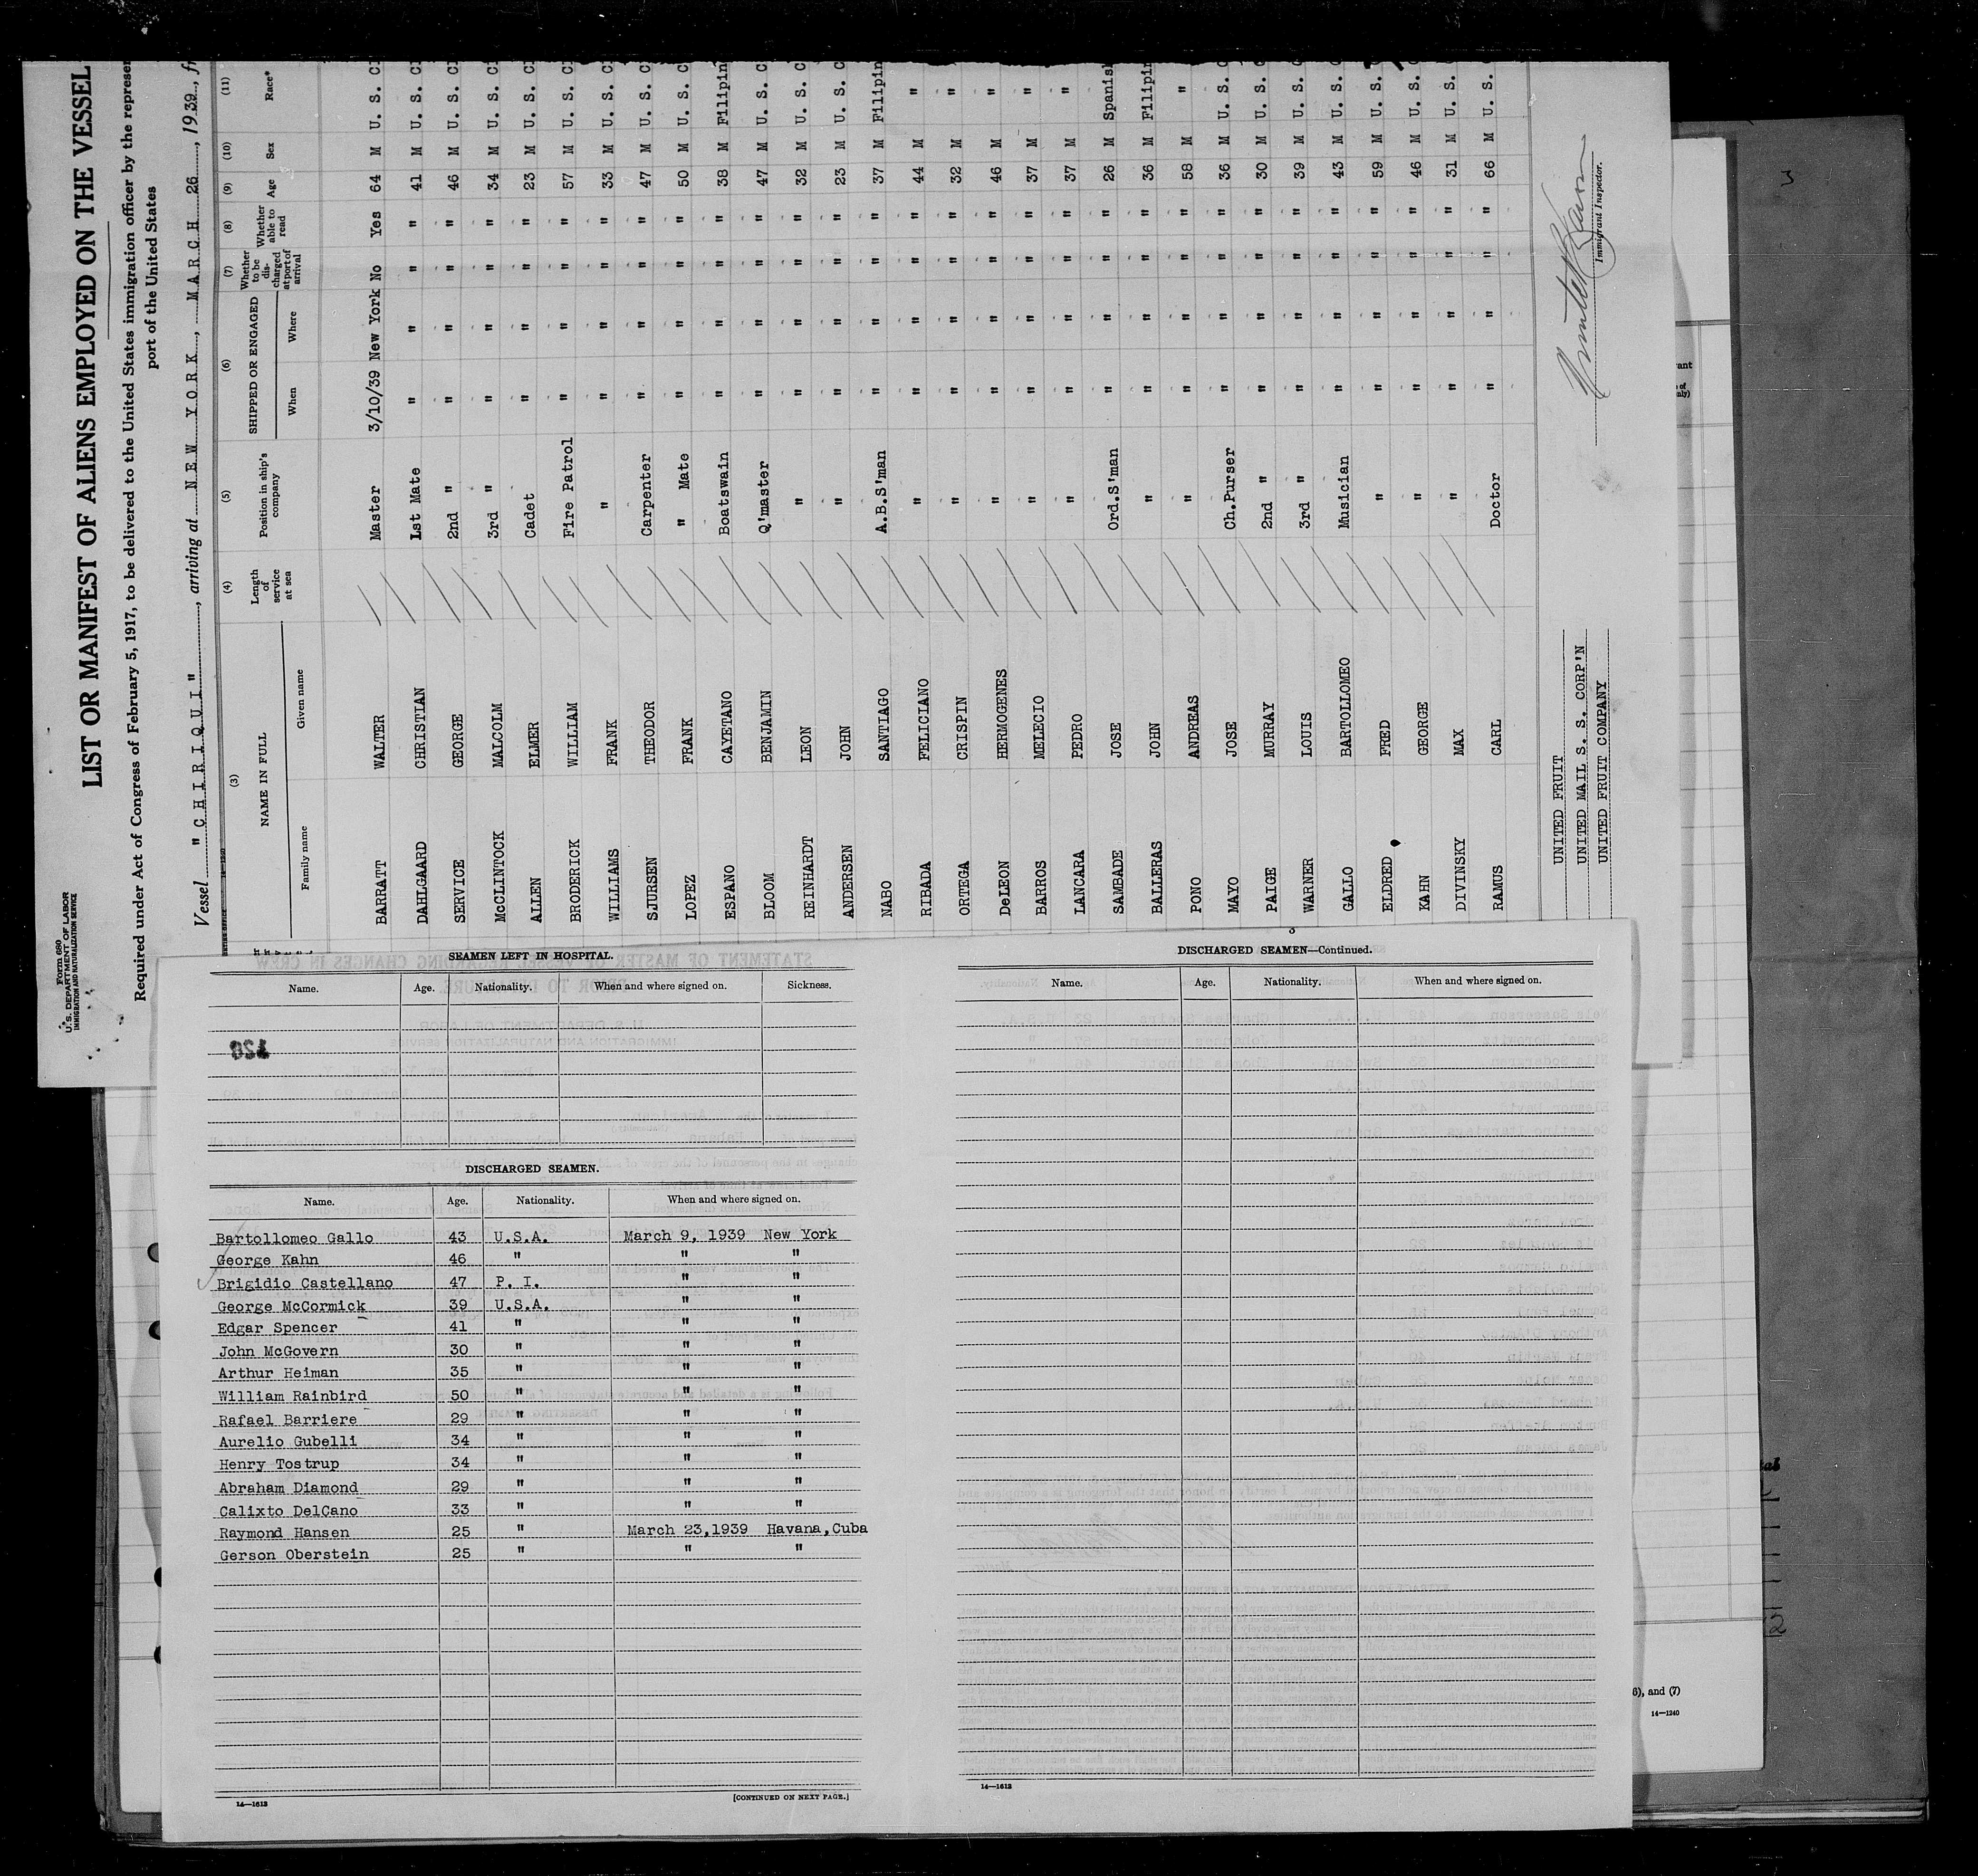 Form 680
U. S. DEPARTMENT OF LABOR
IMMIGRATION AND NATURALIZATION SERVICE
LIST OR MANIFEST OF ALIENS EMPLOYED ON THE VESSEL
Required under Act of Congress of February 5, 1917, to be delivered to the United States immigration officer by the represen
port of the United States
Vessel "CHIRIQUI", arriving at NEW YORK, MARCH 26, 1939, fr
(3) (4) (5) (6) (7) (8) (9) (10) (11)
NAME IN FULL Length of service at sea Position in ship's company SHIPPED OR ENGAGED Whether to be discharged at port of arrival Whether able to read Age Sex Race*
Family name Given name When Where
BARRATT WALTER Master 3/10/39 New York No Yes 64 M U. S. C
DAHLGAARD CHRISTIAN 1st Mate " " " " 41 M U. S. C
SERVICE GEORGE 2nd " " " " " 46 M U. S. C
McCLINTOCK MALCOLM 3rd " " " " " 34 M U. S. C
ALLEN ELMER Cadet " " " " 23 M U. S. C
BRODERICK WILLIAM Fire Patrol " " " " 57 M U. S. C
WILLIAMS FRANK " " " " " 33 M U. S. C
SJURSEN THEODOR Carpenter " " " " 47 M U. S. C
LOPEZ FRANK " Mate " " " " 50 M U. S. C
ESPANO CAYETANO Boatswain " " " " 38 M Filipin
BLOOM BENJAMIN Q'master " " " " 47 M U. S. C
REINHARDT LEON " " " " " 32 M U. S. C
ANDERSEN JOHN " " " " " 23 M U. S. C
NABO SANTIAGO A.B.S'man " " " " 37 M Filipin
RIBADA FELICIANO " " " " " 44 M "
ORTEGA CRISPIN " " " " " 32 M "
DeLEON HERMOGENES " " " " " 46 M "
BARROS MELECIO " " " " " 37 M "
LANCARA PEDRO " " " " " 37 M "
SAMBADE JOSE Ord.S'man " " " " 26 M Spanis
BALLERAS JOHN " " " " " 36 M Filipin
PONO ANDREAS " " " " " 58 M "
MAYO JOSE Ch.Purser " " " " 36 M U. S. C
PAIGE MURRAY 2nd " " " " " 30 M U. S.
WARNER LOUIS 3rd " " " " " 39 M U. S.
GALLO BARTOLLOMEO Musician " " " " 43 M U. S.
ELDRED FRED " " " " " 59 M U. S.
KAHN GEORGE " " " " " 46 M U. S.
DIVINSKY MAX " " " " " 31 M U. S.
RAMUS CARL Doctor " " " " 66 M U. S.
UNITED FRUIT
UNITED MAIL S. S. CORP'N
UNITED FRUIT COMPANY
Immigrant Inspector.
SEAMEN LEFT IN HOSPITAL.
Name. Age. Nationality. When and where signed on. Sickness.
DISCHARGED SEAMEN.
Name. Age. Nationality. When and where signed on.
Bartollomeo Gallo 43 U.S.A. March 9, 1939 New York
George Kahn 46 " " "
Brigidio Castellano 47 P. I. " "
George McCormick 39 U.S.A. " "
Edgar Spencer 41 " " "
John McGovern 30 " " "
Arthur Heiman 35 " " "
William Rainbird 50 " " "
Rafael Barriere 29 " " "
Aurelio Gubelli 34 " " "
Henry Tostrup 34 " " "
Abraham Diamond 29 " " "
Calixto DelCano 33 " " "
Raymond Hansen 25 " March 23,1939 Havana,Cuba
Gerson Oberstein 25 " " "
14—1612
[CONTINUED ON NEXT PAGE.]
3
DISCHARGED SEAMEN—Continued.
Name. Age. Nationality. When and where signed on.
14—1612
6), and (7)
14—1240